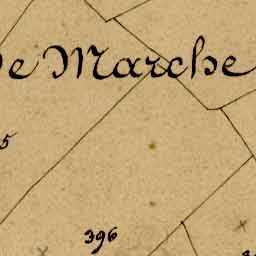 de Marche
5
396